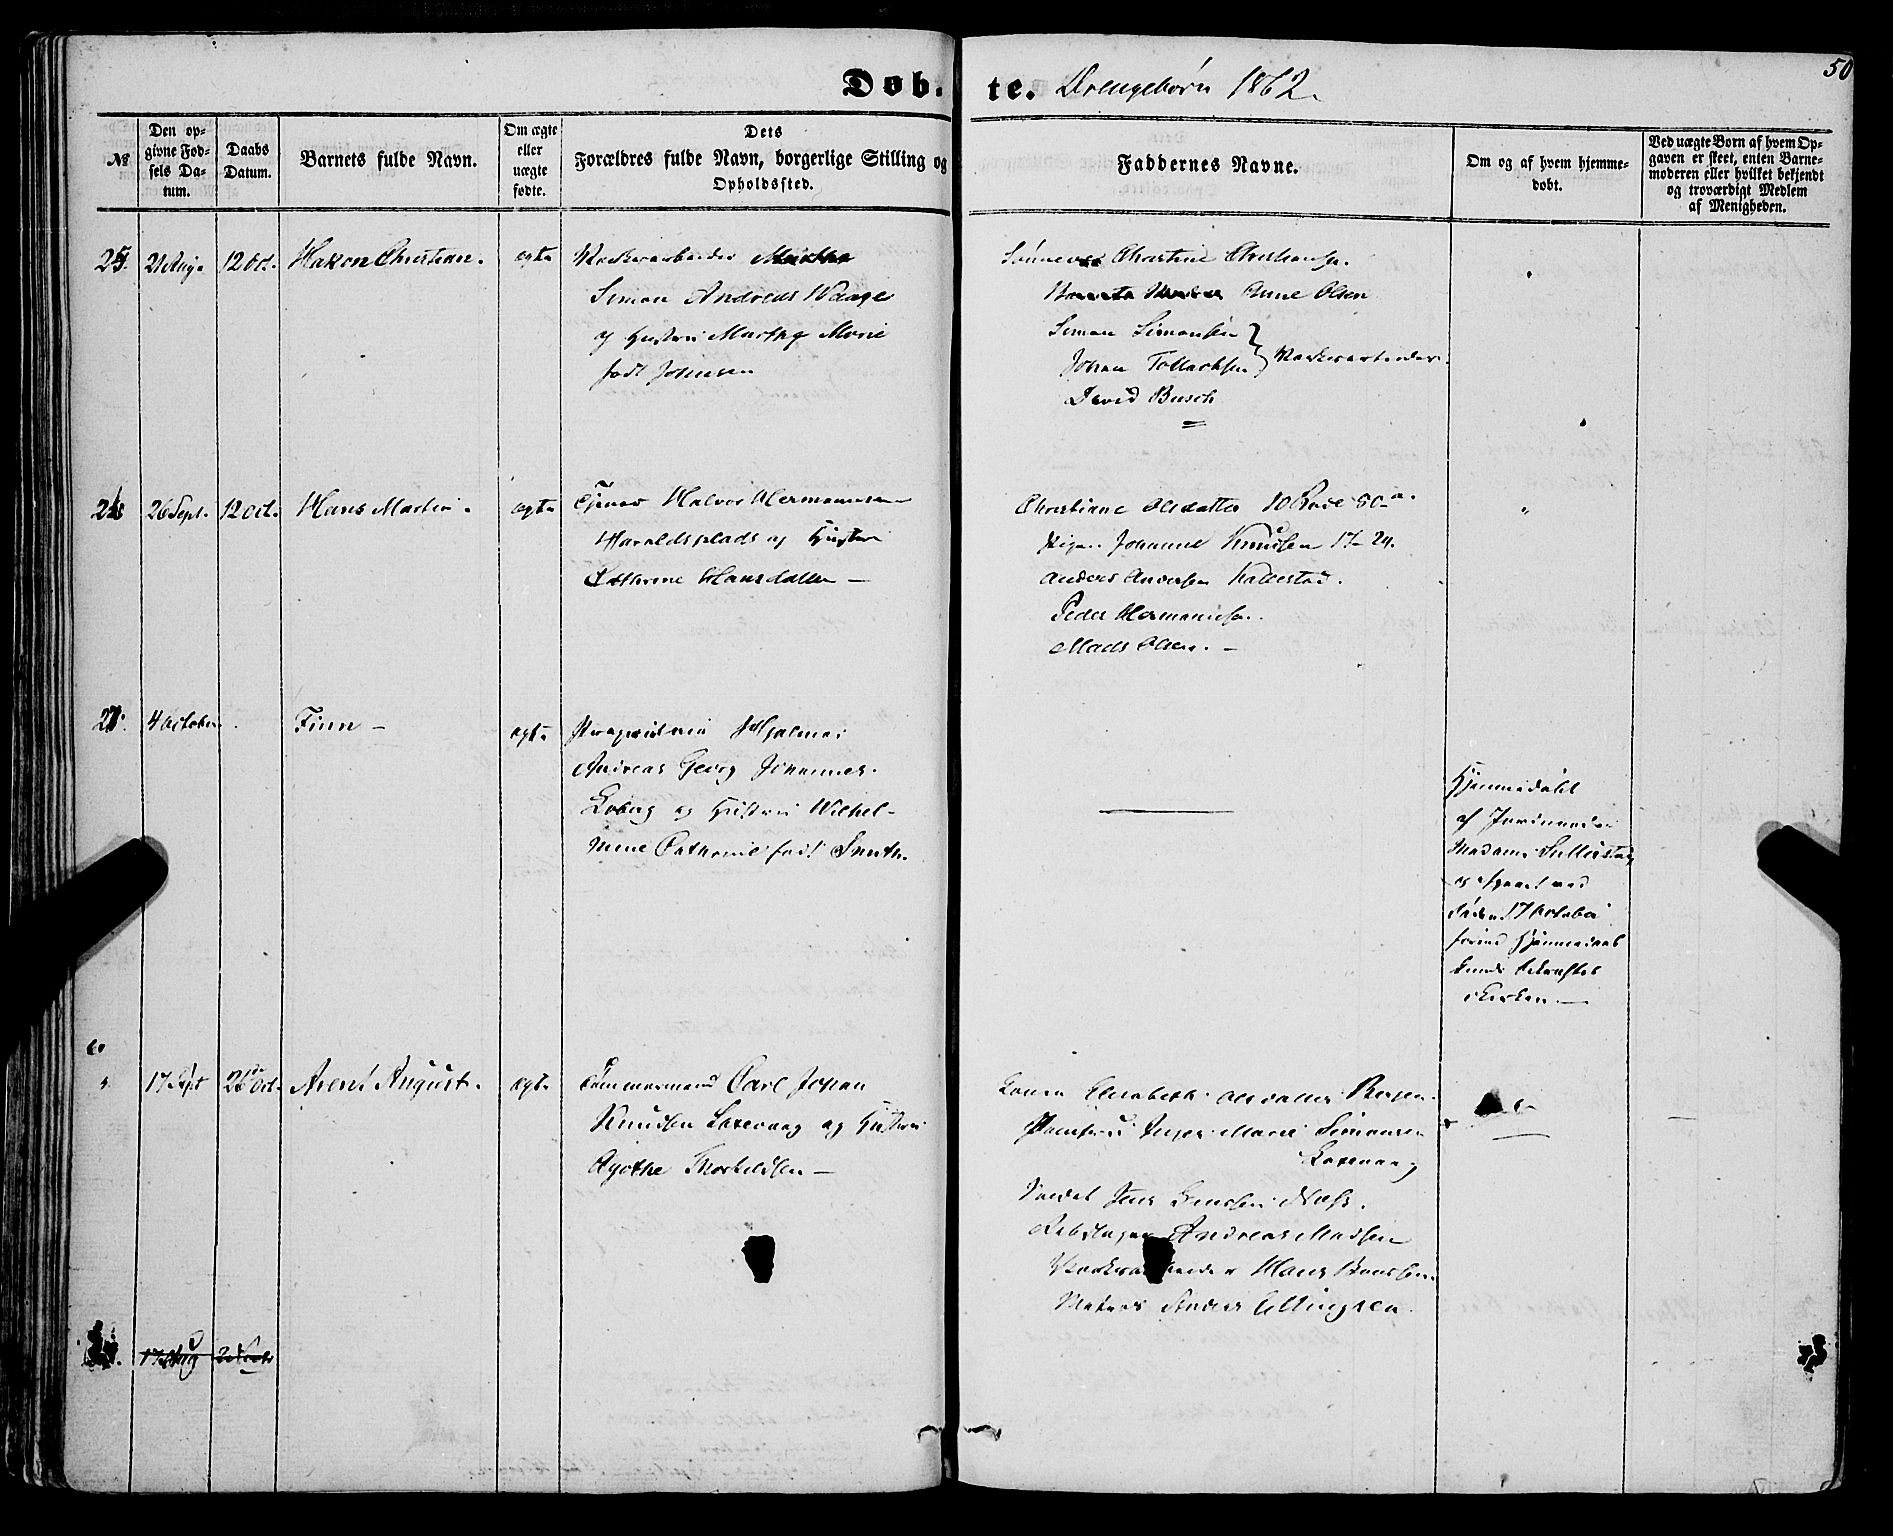 Døb-te. Drengebørn 1862.
50
No
Den opgivne Fødsels Datum.
Daabs Datum.
Barnets fulde Navn.
Om ægte eller uægte fødte.
Dets Forældres fulde Navn, borgerlige Stilling og Opholdssted.
Faddernes Navne.
Om og af hvem hjemmedøbt.
Ved uægte Børn af hvem Opgaven er skeet, enten Barnemoderen eller hvilket bekjendt og troværdigt Medlem af Menigheden.
25. 21 Aug. 12 Oct. Hakon Christian. ægte Værksarbeider
Simon Andreas Waage
og Hustru Marthe Marie
født Johnsen
Christine Christiansen.
Anne Olsen
Simon Simonsen
Johan Tollachsen } Værksarbeider.
David Busch
26 26 Sept. 12 Oct. Hans Martin. ægte Tjener Halvor Hermannsen
Haraldsplads og Hustru
Cathrine Hansdatter —
Christiane Olsdatter 10 Rode 80 a.
Pigen Johanne Knudsen 17- 24.
Anders Andersen Kallestad.
Peder Hermansen.
Mads Olsen. —
27. 4 October. Finn — ægte Hjalmar
Andreas Georg Johannes
Løberg og Hustru Wilhel-
mine Cathrine født Smith.
Hjemmedøbt
af Jordmoder
Madame
døden 17 October
førend Hjemmedaab
kunde bekræftes
i Kirken. —
17 Sept 26 Oct. Arent August. ægte Tømmermand Carl Johan
Knudsen Laxevaag og Hustru
Agathe Thorkildsen —
Elisabeth Olsdatter Bergen.
Inger Marie Simonsen
Laxevaag
Jens Næss.
Rebslager Andreas Madsen
Værksarbeider Hans
Anders Ellingsen.
17 Aug